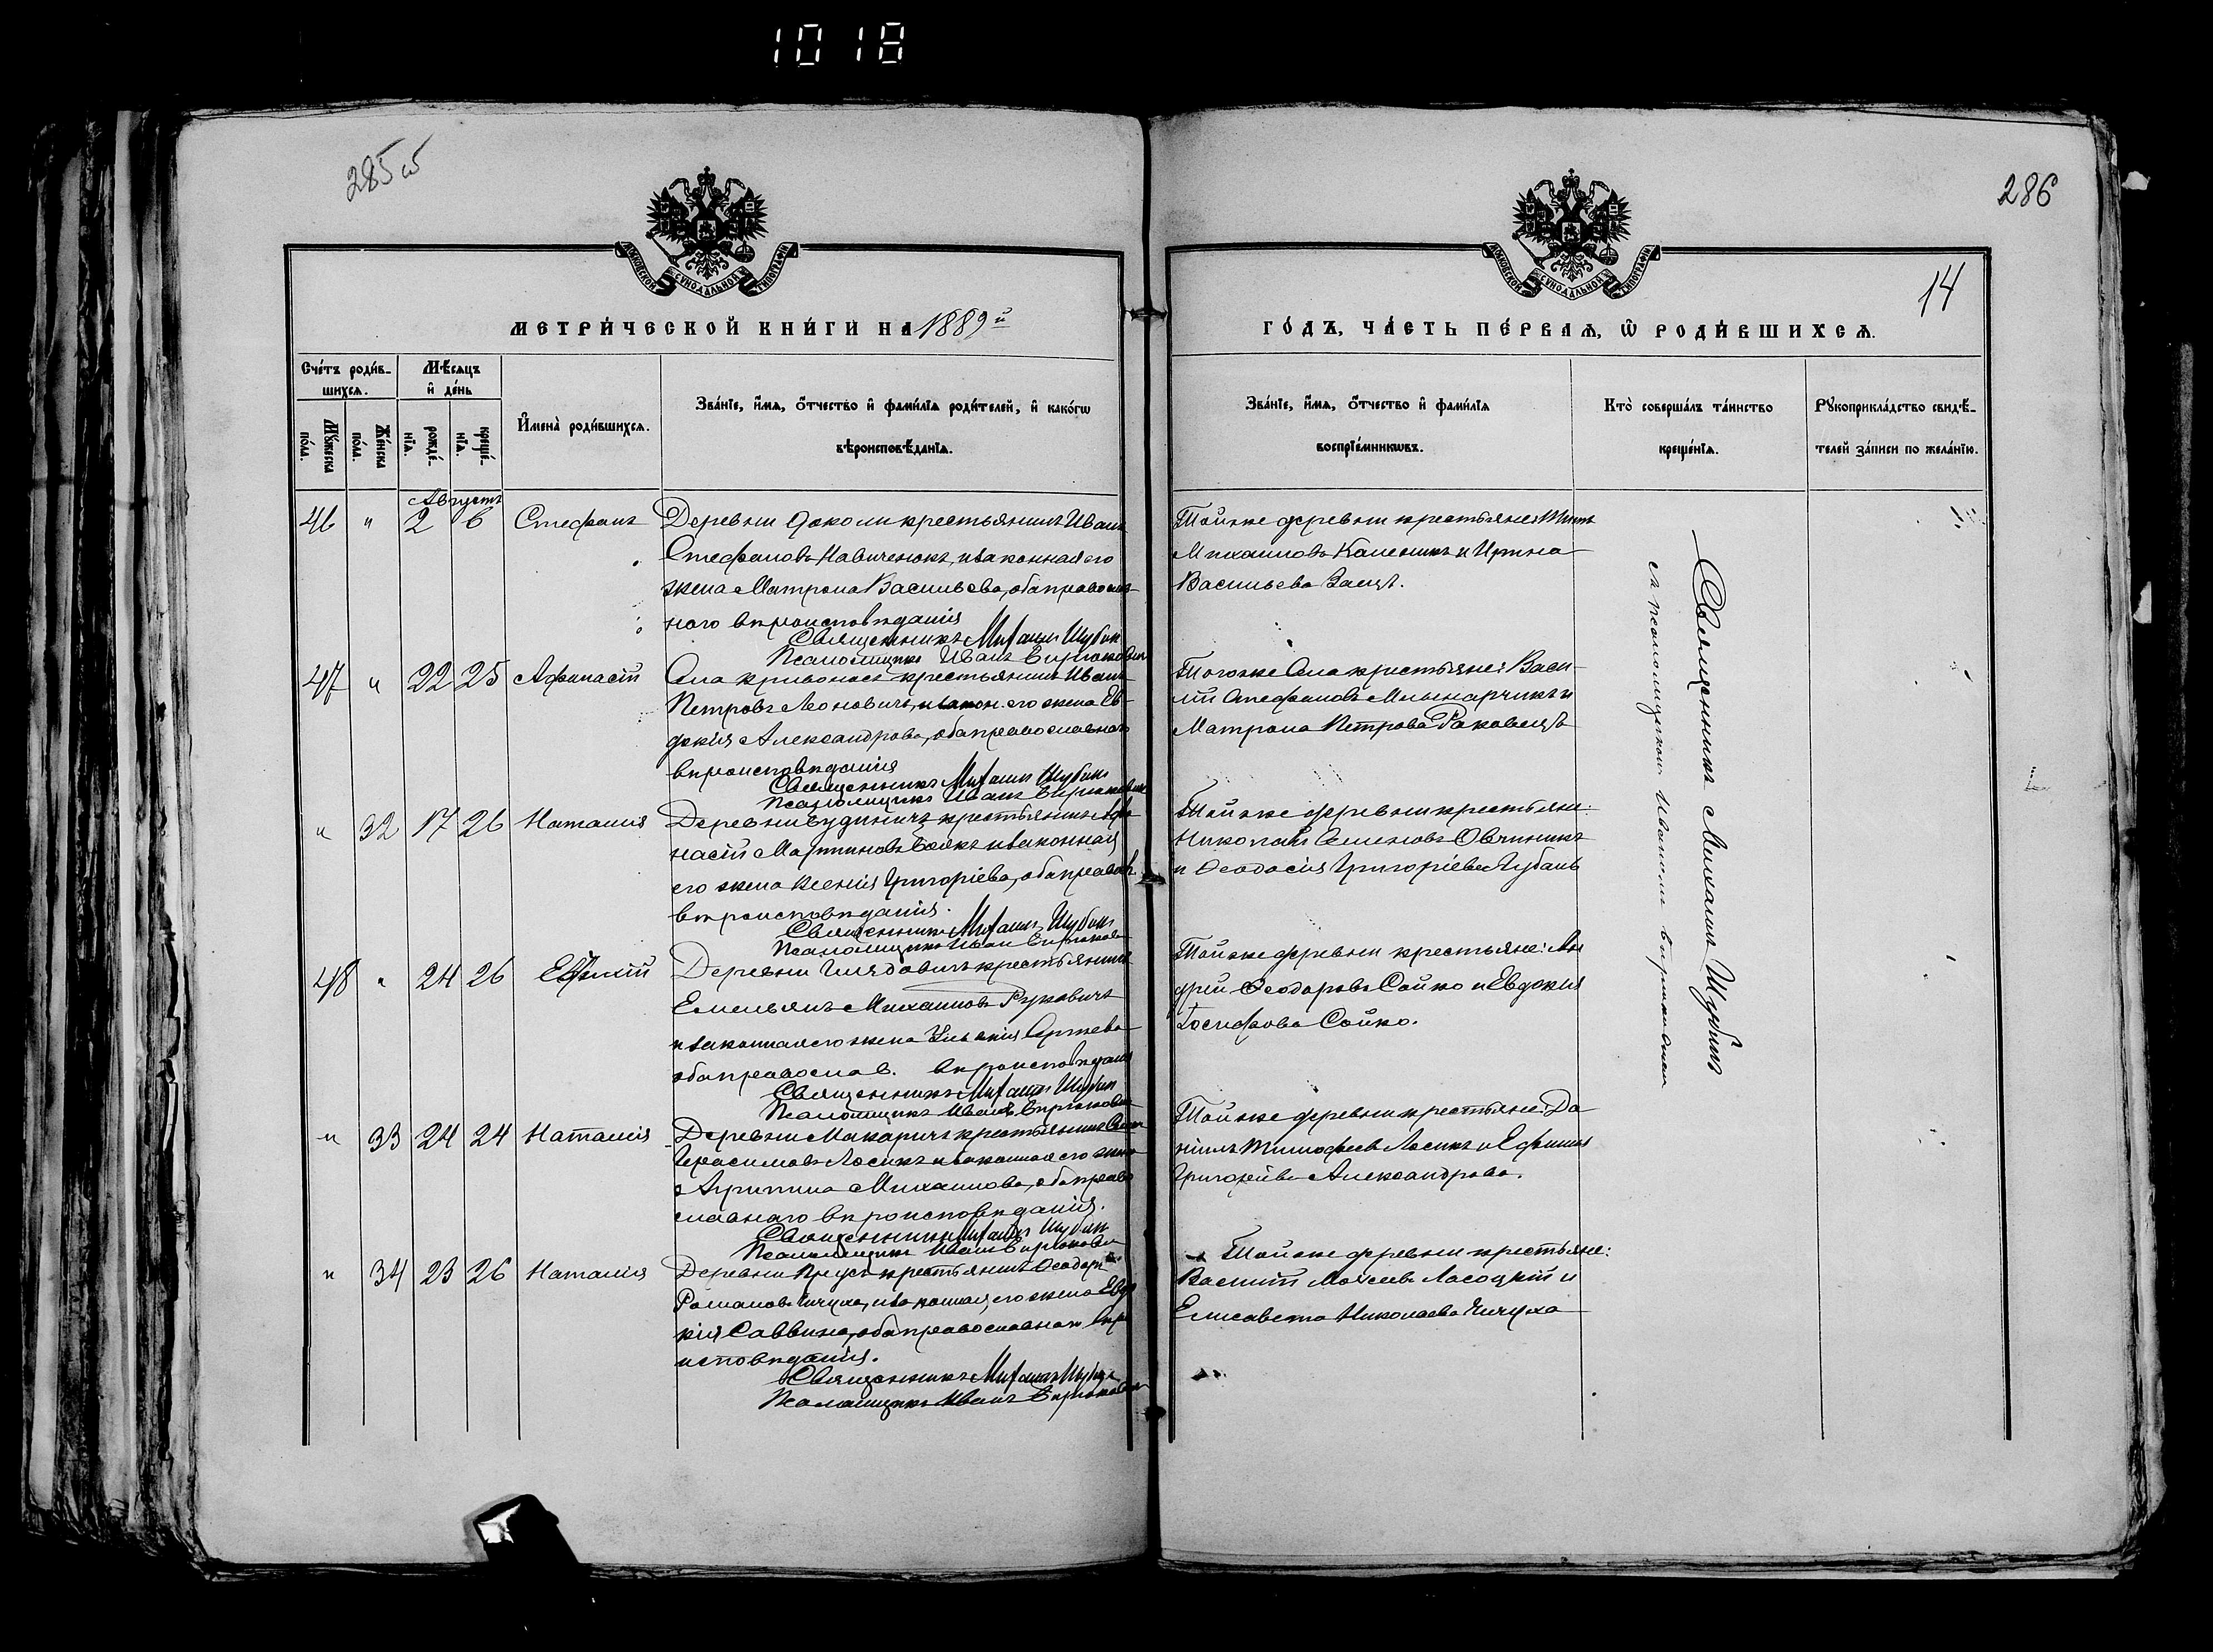 1018
285 об
286
14
МОСКОВСКОЙ СѴНОДАЛЬНОЙ ТИПОГРАФІИ
МОСКОВСКОЙ СѴНОДАЛЬНОЙ ТИПОГРАФІИ
МЕТРИ́ЧЕСКОЙ КНИ́ГИ НА 1889й
ГО́ДЪ, ЧА́СТЬ ПЕ́РВАѦ, Ѡ РОДИ́ВШИХСѦ.
Сче́тъ роди́в-
шихсѧ.
Мѣ́сѧцъ
и де́нь
Мꙋ́жеска
по́ла.
Же́нска
по́ла.
рожде́-
нїѧ.
креще́-
нїѧ.
Имена̀ роди́вшихсѧ.
Зва́нїе, и́мѧ, о́тчество и фами́лїѧ роди́телей, и како́гѡ
вѣроисповѣ́данїѧ.
Зва́нїе, и́мѧ, о́тчество и фами́лїѧ
воспрїе́мникѡвъ.
Кто̀ соверша́лъ та́инство
креще́нїѧ.
Рꙋкоприкла́дство свидѣ́-
телей за́писи по жела́нїю.
Августъ
46 " 2 6 Стефанъ Деревни крестьянинъ Иванъ
Стефановъ и законная его
жена Матрона Васильева, оба православ-
ного вѣроисповѣданія
Священникъ Михаилъ Шубинъ
Псаломщикъ Иванъ
Тойже деревни крестьяне:
Михаиловъ и Ирина
Васильева Заяцъ.
47 " 22 25 Афанасій Села крестьянинъ Иванъ
Петровъ Леоновичъ, и закон. его жена Ев-
докія Александрова, оба православнаго
вѣроисповѣданія
Священникъ Михаилъ Шубинъ
Псаломщикъ Иванъ
Тогоже Села крестьяне: Васи-
лій Стефановъ Мельнарчикъ и
Матрона Петрова Раковецъ
" 32 17 26 Наталія Деревни крестьянинъ Афа-
насій Мартиновъ и законная
его жена Ксенія Григоріева, оба правосл.
вѣроисповѣданія.
Священникъ Михаилъ Шубинъ
Псаломщикъ Иванъ
Тойже деревни крестьяне:
Николай Семеновъ Овчиникъ
и Ѳеодосія Григоріева
48 " 24 26 Деревни крестьянинъ
Емельянъ Михаиловъ Руковичъ
и законная его жена
оба православ. вѣроисповѣданія
Священникъ Михаилъ Шубинъ
Псаломщикъ Иванъ
Тойже деревни крестьяне: Ан-
дрей Ѳеодоровъ Сайко и Евдокія
Іосифова Сойко.
" 33 24 24 Наталія Деревни Макаричъ крестьянинъ
Герасимовъ Лосикъ и законная его жена
Агрипина Михаилова, оба право-
славнаго вѣроисповѣданія.
Священникъ Михаилъ Шубинъ
Псаломщикъ Иванъ
Тойже деревни крестьяне: Да-
ніилъ Тимофеевъ Лосикъ и Ефимія
Григоріева Александрова.
" 34 23 26 Наталія Деревни крестьянинъ Ѳеодоръ
Романовъ и законная его жена Евдо-
кія Саввина, оба православнаго вѣро-
исповѣданія.
Священникъ Михаилъ Шубинъ
Псаломщикъ Иванъ
Тойже деревни крестьяне:
Василій Моисеевъ Ласоцкій и
Елисавета Николаева
Священникъ Михаилъ Шубинъ
съ псаломщикомъ Иваномъ